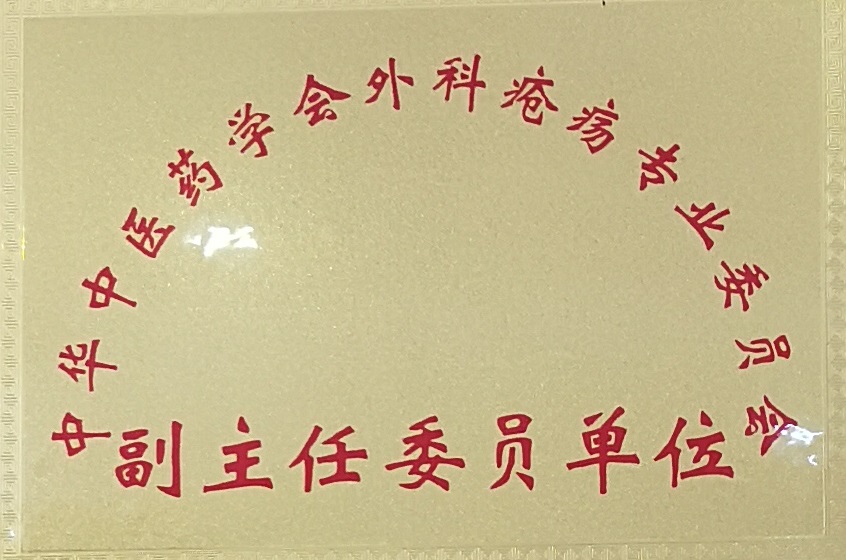 中华中医药学会外科疮疡专业委员会
副主任委员单位